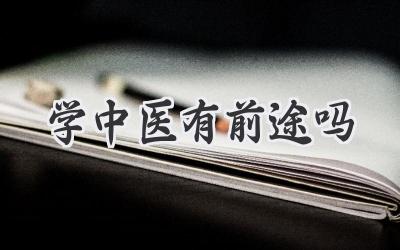 学中医有前途吗